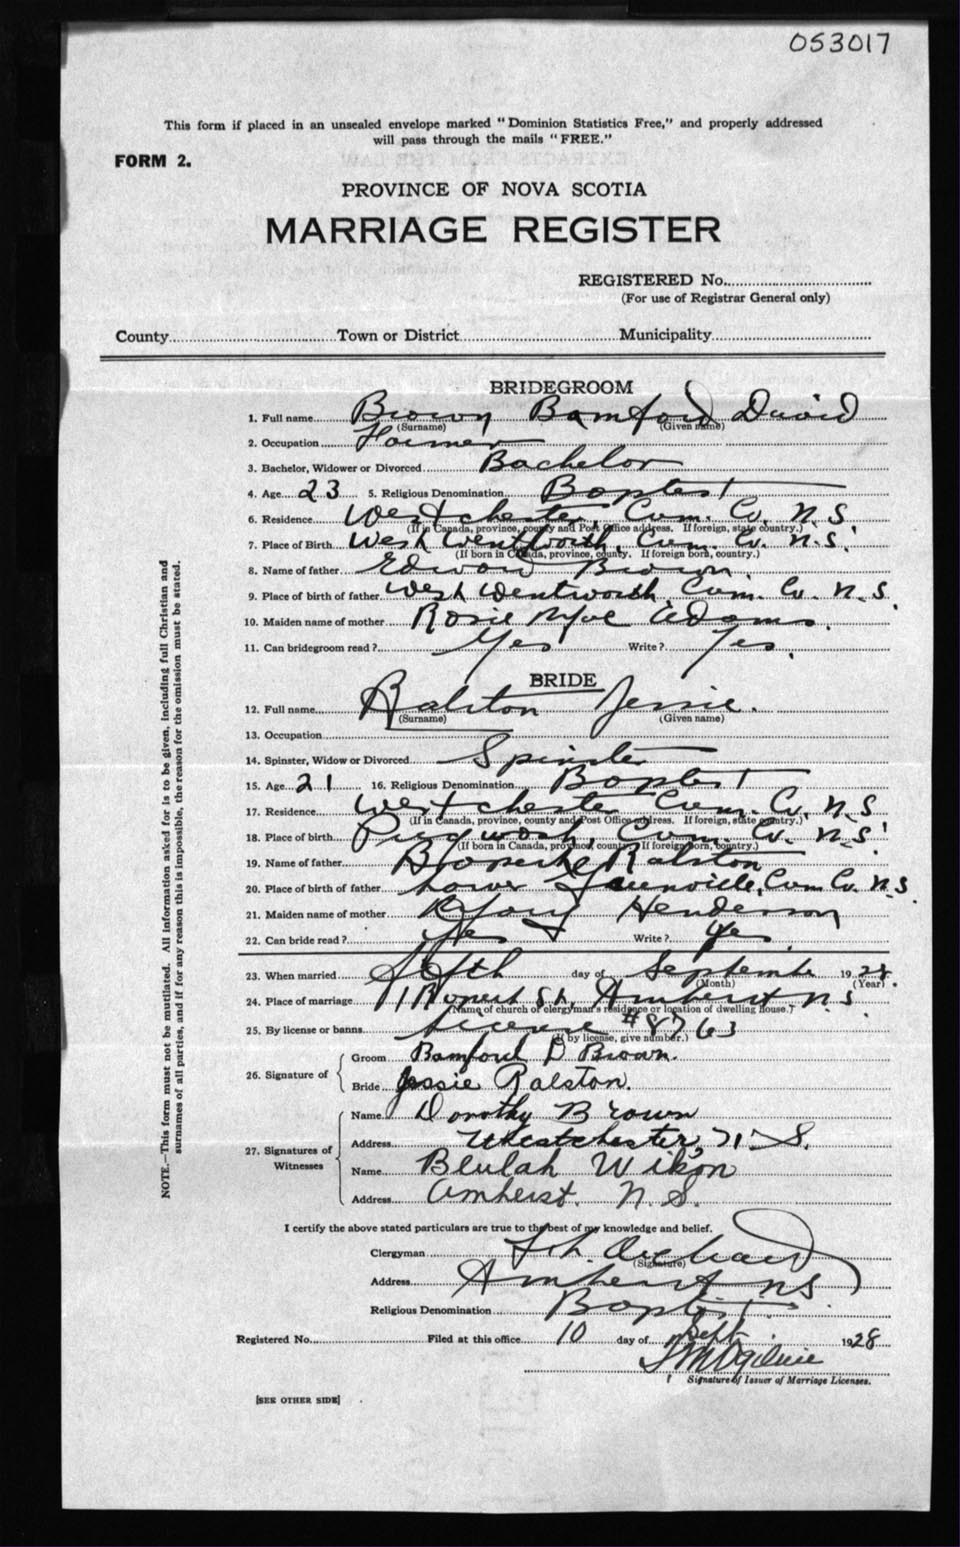 053017
This form if placed in an unsealed envelope marked "Dominion Statistics Free," and properly addressed
will pass through the mails "FREE."
FORM 2.
PROVINCE OF NOVA SCOTIA
MARRIAGE REGISTER
REGISTERED No.
(For use of Registrar General only)
County Town or District Municipality
BRIDEGROOM
1. Full name Brown Bamford David
(Surname) (Given name)
2. Occupation Farmer
3. Bachelor, Widower or Divorced Bachelor
4. Age 23 5. Religious Denomination Baptist
6. Residence Westchester, Cum. Co. N.S.
(If in Canada, province, county and Post Office address. If foreign, state country.)
7. Place of Birth West Wentworth, Cum. Co. N.S.
(If born in Canada, province, county. If foreign born, country.)
8. Name of father Edward Brown.
9. Place of birth of father West Wentworth, Cum. Co. N.S.
10. Maiden name of mother Rosie Adams.
11. Can bridegroom read? Yes Write? Yes.
BRIDE
12. Full name Ralston Jessie.
(Surname) (Given name)
13. Occupation
14. Spinster, Widow or Divorced Spinster
15. Age 21 16. Religious Denomination Baptist
17. Residence Westchester Cum. Co. N.S.
(If in Canada, province, county and Post Office address. If foreign, state country.)
18. Place of birth Pugwash, Cum. Co. N.S.
(If born in Canada, province, county. If foreign born, country.)
19. Name of father Ralston
20. Place of birth of father Lower Cum Co. N.S.
21. Maiden name of mother Mary Henderson
22. Can bride read? Yes Write? Yes.
23. When married day of September 1928.
(Month) (Year)
24. Place of marriage Rupert St. Amherst N.S.
(Name of church or clergyman's residence or location of dwelling house.)
25. By license or banns License #8763
(If by license, give number.)
26. Signature of
Groom Bamford D Brown.
Bride Jessie Ralston.
27. Signatures of Witnesses
Name Dorothy Brown
Address Westchester, N.S.
Name Beulah Wilson
Address Amherst. N.S.
I certify the above stated particulars are true to the best of my knowledge and belief.
Clergyman Orchard
(Signature)
Address Amherst N.S.
Religious Denomination Baptist
Registered No. Filed at this office 10 day of Sept. 1928
Ogilvie
Signature of Issuer of Marriage Licenses.
[SEE OTHER SIDE]
NOTE.—This form must not be mutilated. All information asked for is to be given, including full Christian and
surnames of all parties, and if for any reason this is impossible, the reason for the omission must be stated.